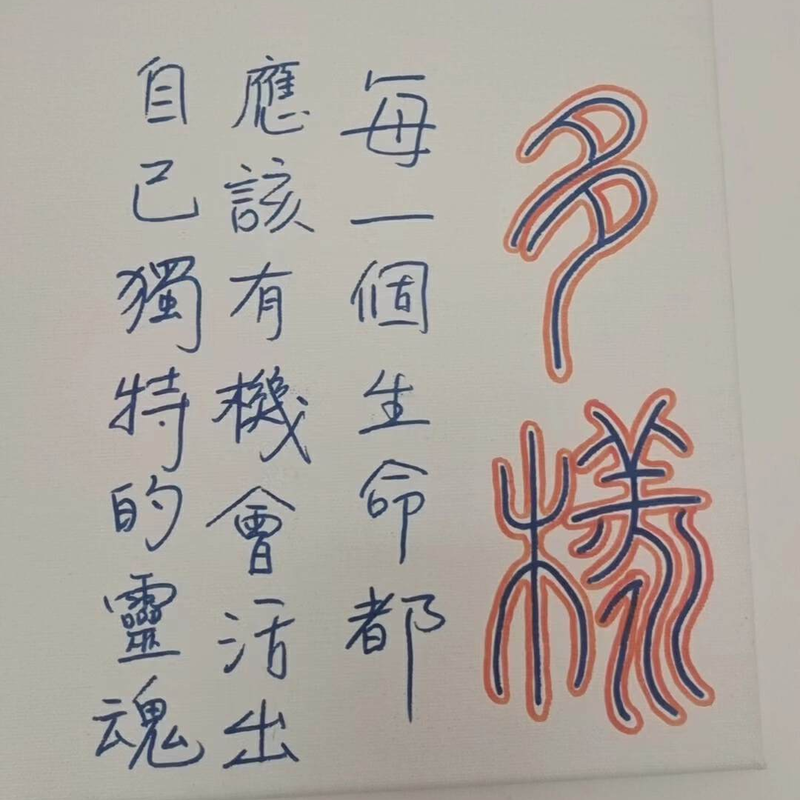 多樣
每一個生命都
應該有機會活出
自己獨特的靈魂